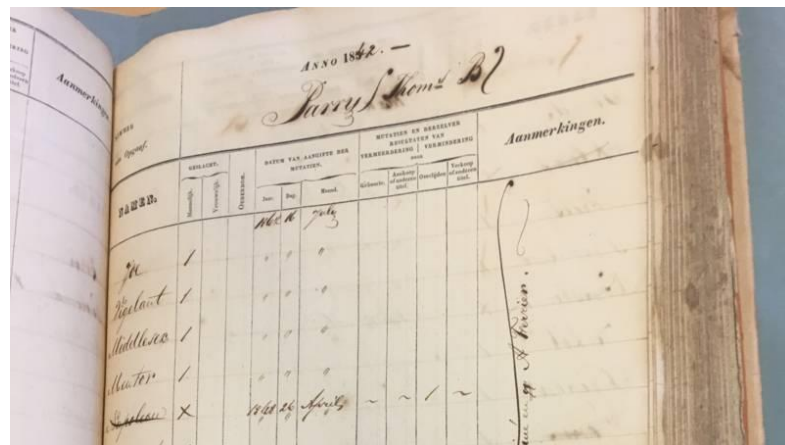 ANNO 1842. —
Parry / Thoms B
Aanmerkingen
NAMEN.
GESLACHT.
Mannelijk.
Vrouwelijk.
OUDERDOM.
DATUM VAN AANGIFTE DER MUTATIEN.
Jaar.
Dag.
Maand.
MUTATIEN EN DERZELVER RESULTATEN VAN
VERMEERDERING
VERMINDERING
DOOR
Geboorte.
Aankoop of anderen titel.
Overlijden
Verkoop of anderen titel.
Aanmerkingen.
16 July
Joe 1 " " "
Vigelant 1 " " "
Middlesex 1 " " "
Mentor 1 " " "
X 1848 26 April ~ ~ 1 ~